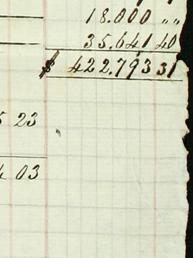 18.000 " "
35.641 40
$ 422.793 31
5 23
4 03